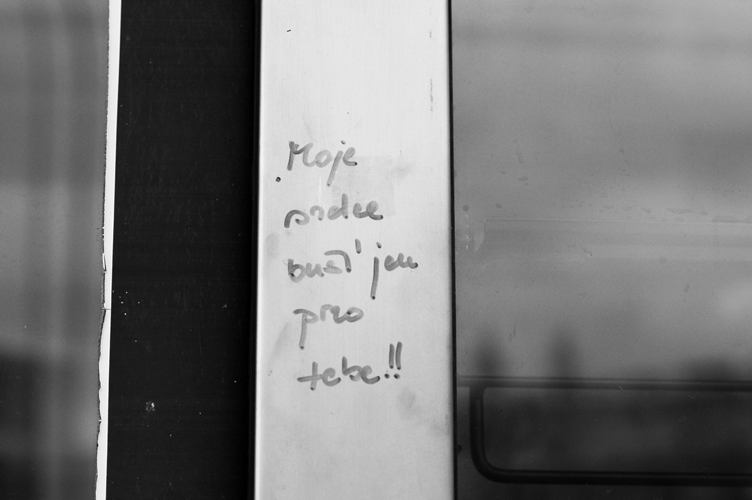 Moje
srdce
buší jen
pro
tebe!!